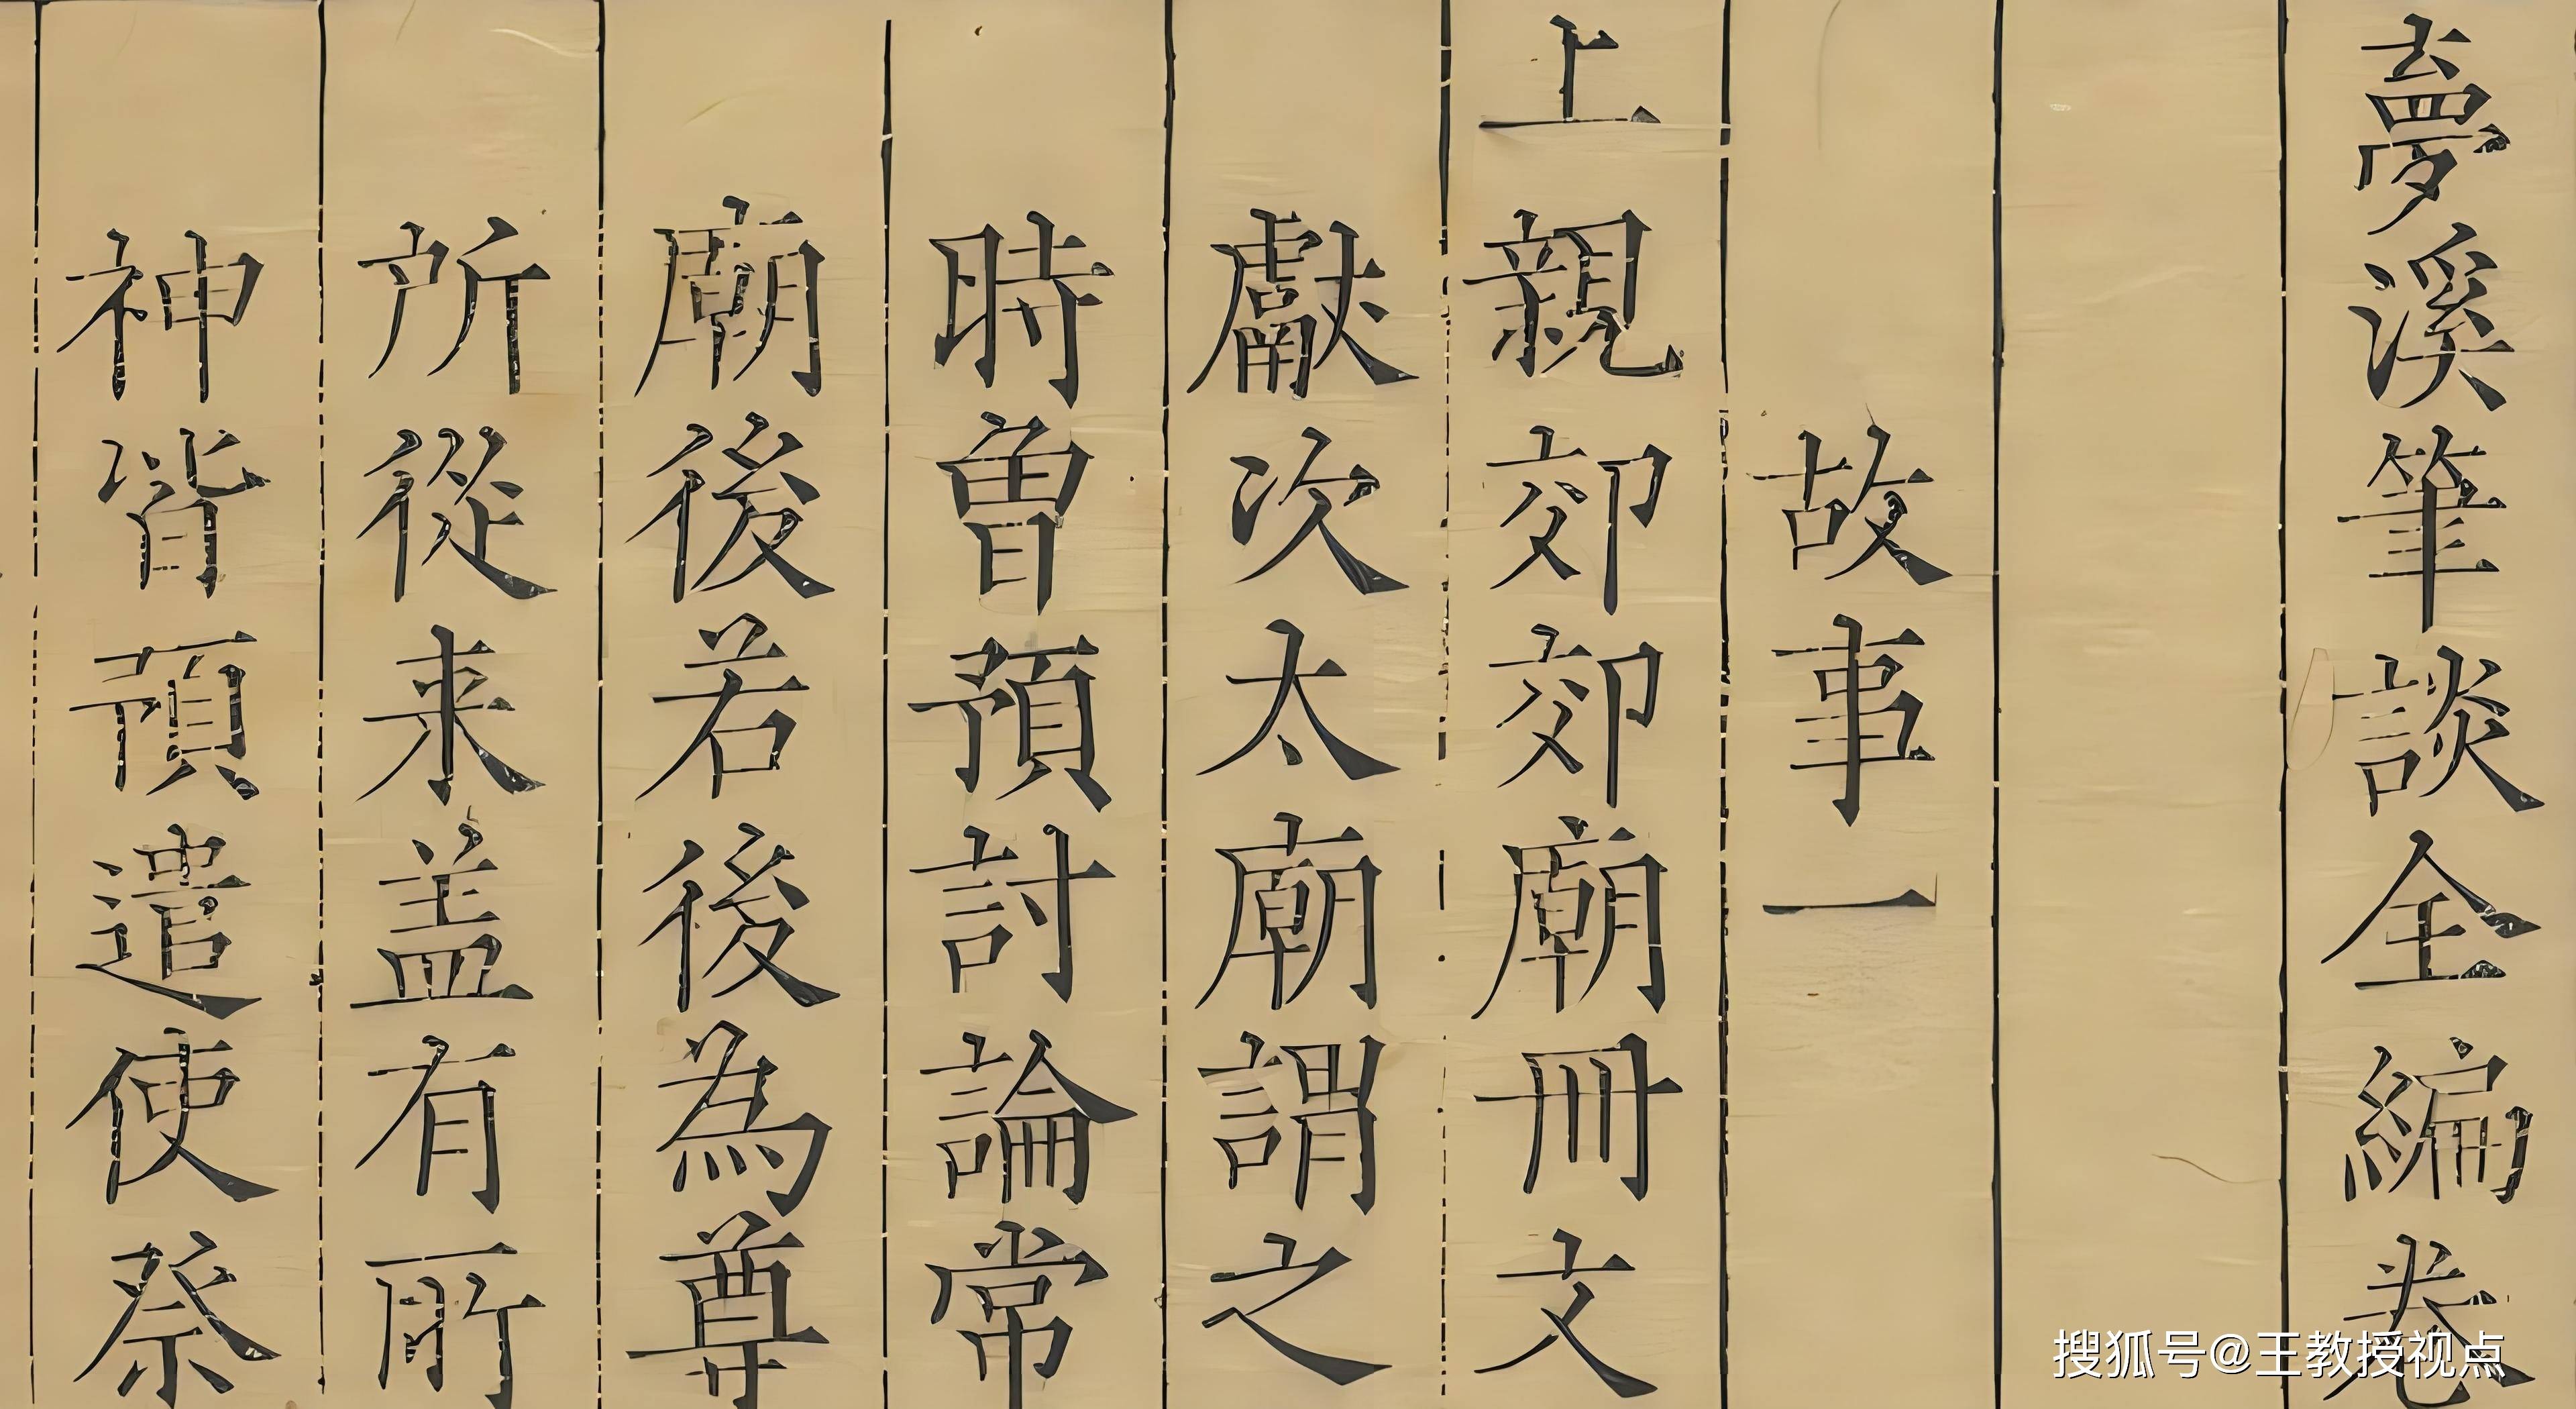 夢溪筆談全編卷
故事一
上親郊郊廟冊文
獻次太廟謂之
時曾預討論常
廟後若後為尊
所從来盖有所
神皆預遣使祭
搜狐号@王教授视点